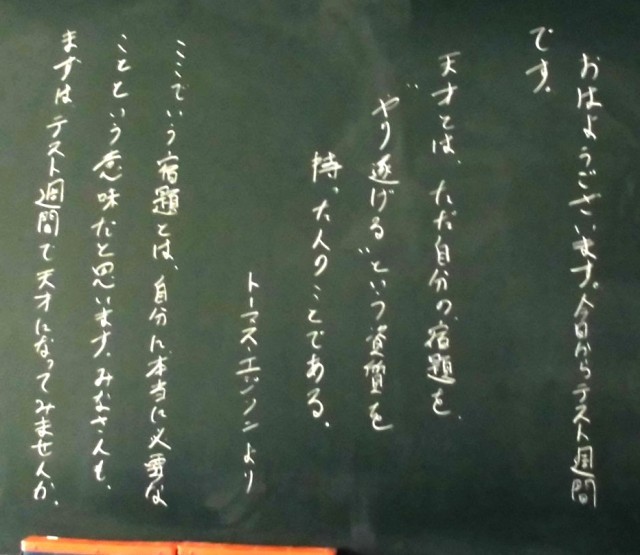 おはようございます。今日からテスト週間
です。
天才とは、ただ自分の宿題を、
"やり遂げる"という資質を
持った人のことである。
トーマス・エジソンより
ここでいう宿題とは、自分に本当に必要な
ことという意味だと思います。みなさんも、
まずはテスト週間で天才になってみませんか。